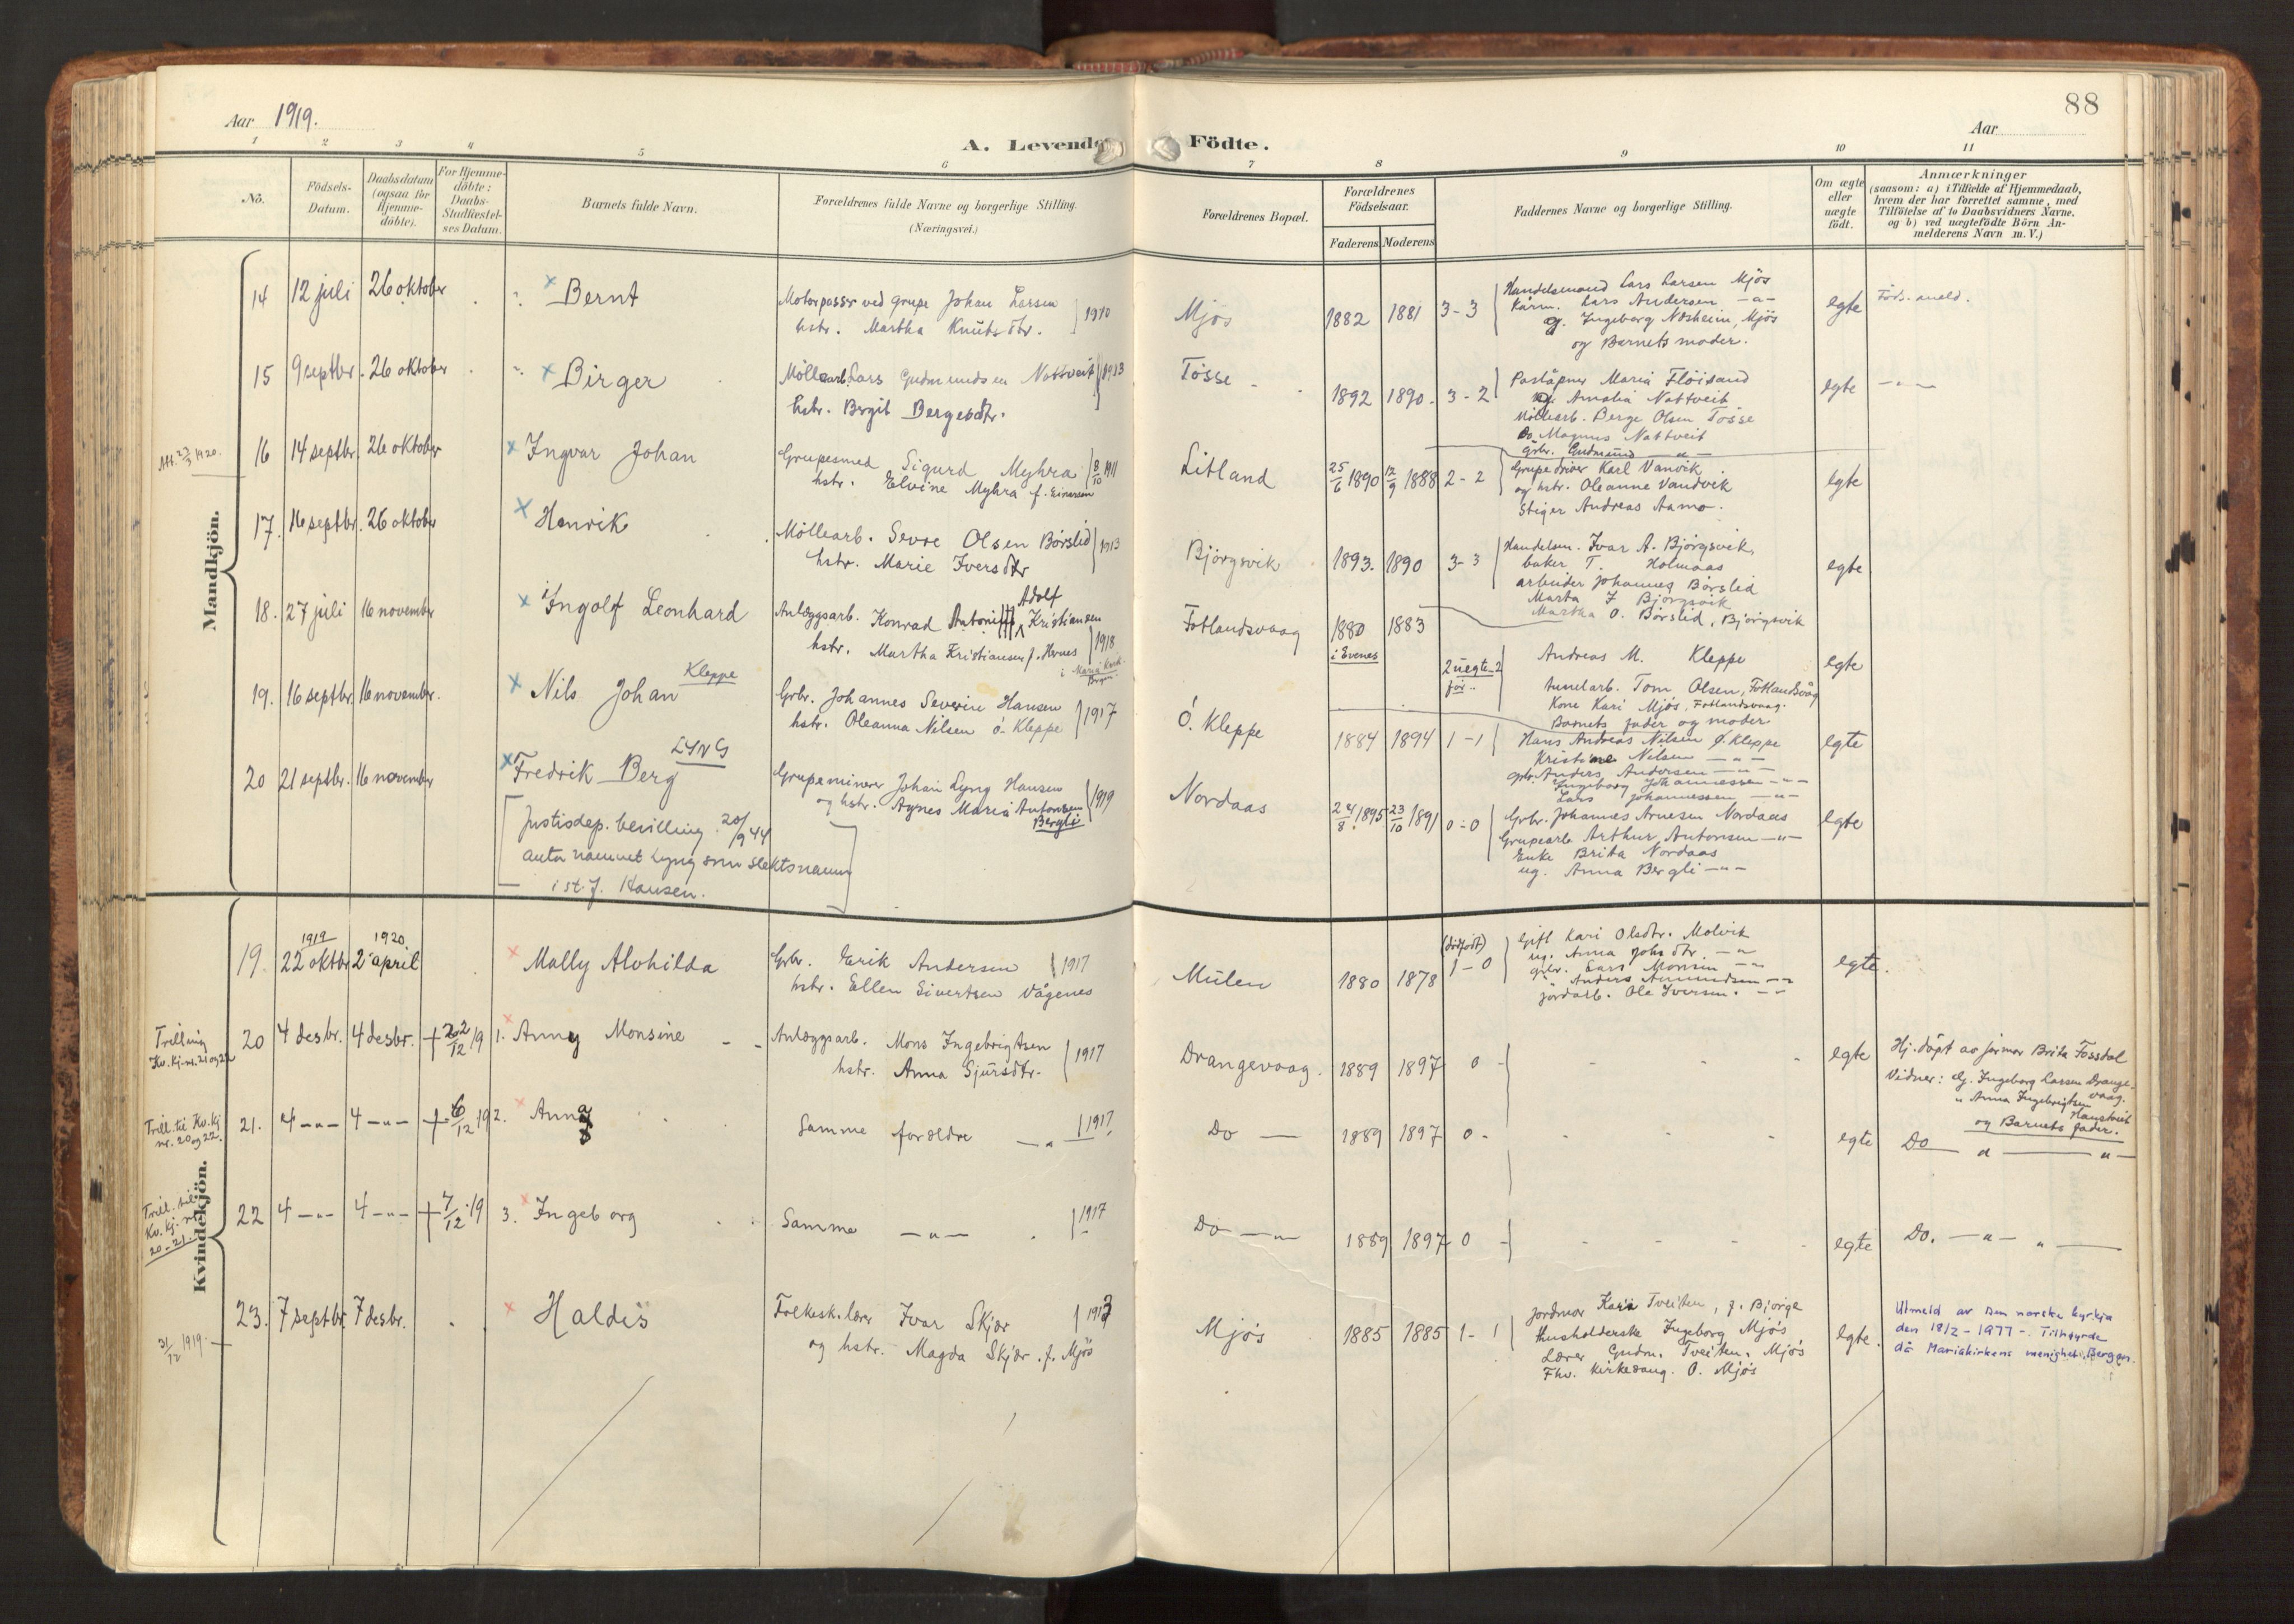 88
Aar 1919.
Aar
A. Levende Födte.
1 2 3 4 5 6 7 8 9 10 11
No.
Födsels-Datum.
Daabsdatum (ogsaa for Hjemme-döbte).
For Hjemme-döbte: Daabs-Stadfæstel-ses Datum.
Barnets fulde Navn.
Forældrenes fulde Navne og borgerlige Stilling.
(Næringsvei.)
Forældrenes Bopæl.
Forældrenes Födselsaar.
Faderens Moderens
Faddernes Navne og borgerlige Stilling.
Om ægte eller uægte födt.
Anmærkninger
(saasom: a) i Tilfælde af Hjemmedaab,
hvem der har forrettet samme, med
Tilföielse af to Daabsvidners Navne,
og b) ved uægtefödte Börn An-
melderens Navn m. V.)
Mandkjön.
14 12 juli 26 oktober Bernt
Motorpasser ved grupe Johan Larsen 1910
hstr. Martha Knutsdtr.
Mjøs 1882 1881 3-3
Handelsmand Lars Larsen Mjös
Kårm. Lars Andersen -"-
g. Ingeborg Næsheim, Mjös
og Barnets moder.
egte Föds. aneld.
15 9 septbr. 26 oktober Birger
Möllearb. Lars Gudmundsen Nottveit 1913
hstr. Brgit Bergesdtr.
Tösse 1892 1890 3-2
Poståpner Maria Flöisand
Amalia Nottveit
Möllearb. Berge Olsen Tösse
Do. Magnus Nottveit
Grbr. Gudmund -"-
egte -"-
Att. 23/3 1920.
16 14 septbr. 26 oktober Ingvar Johan
Grupesmed Sigurd Myhra 8/10 1911
hstr. Elvine Myhra f. Einarsen
Litland 25/6 1890 12/9 1888 2-2
Grupedriver Karl Vanvik
og hstr. Oleanne Vandvik
Stiger Andreas Aamo.
egte
17. 16 septbr. 26 oktober Henrik
Möllearb. Sevre Olsen Börslid 1913
hstr. Marie Iversdtr
Björgsvik 1893. 1890 3-3
Handelsm. Ivar A. Björgsvik,
baker T. Holmaas
arbeider Johannes Børslid
Marta J Bjorgsvik
Martha O. Börslid, Bjorgsvik
egte
18. 27 juli 16 november Ingolf Leonhard
Adolf
Anlægsarb. Konrad Kristiansen
hstr. Martha Kristiansen f. Hernes 1918
i Maria Kirk. Bergen
Fotlandsvaag 1880 1883
i Evenes
2 uegte-2
för..
Andreas M. Kleppe
tunelarb. Tom Olsen, Fotlandsvåg
Kone Kari Mjøs, Fotlandsvaag.
Barnets fader og moder
egte
19. 16 septbr 16 november. Nils Johan Kleppe
Grbr. Johannes Severin Hansen 1917
hstr. Oleanna Nilsen ö. Kleppe
Ö. Kleppe 1884 1894 1-1
Hans Andreas Nilsen Ø. Kleppe
Kristine Nilsen -"-
grbr. Anders Andersen -"-
Ingeborg Johannessen -"-
Lars Johannessen -"-
egte
20 21 septbr. 16 november Fredrik Berg LYNG
Grupeminerer Johan Lyng Hansen 1919
og hstr. Agnes Maria Antonsen
Bergli
Justisdep. bevilling 20/9 44
anta namnet Lyng som slektsnamn
i st. f. Hansen.
Nordaas 24/8 1895 23/10 1891 0-0
Grbr. Johannes Arnesen Nordaas
Grupearb. Arthur Antonsen -"-
Enke Brita Nordaas
ug. Anna Bergli -"-
egte
Kvindekjön.
1919 1920
19. 22 oktbr 2 april Mally Alvhilda
Grbr. Erik Andersen 1917
hstr. Ellen Sivertsen Vågenes
Mulen 1880 1878
(dödfödt)
1-0
Gift Kari Olsdtr. Molvik
ug. Anna Johsdtr. -"-
grbr. Lars Monsen -"-
" Anders Amundsen -"-
jordarb. Ole Iversen. -"-
egte.
Trilling
Kv. kj. nr. 21 og 22
20 4 desbr. 4 desbr. + 22/12 19 1. Anny Monsine
Anlægsarb. Mons Ingebrigtsen 1917
hstr. Anna Sjursdtr.
Drangevaag. 1889 1897 0 -
egte
Hj. döpt av jormor Brita Fossdal
Vidner: Ingeborg Larsen Drange-
vaag.
" Anna Ingebrigtsen
Haustveit
og Barnets fader.
Trill. til Kv. kj
nr. 20 og 22.
21. 4 -"- 4 -"- + 6/12 19 2. Anna
Samme foreldre -"- 1917
Do 1889 1897 0 -
egte Do " "
Trill. til
Kv. kj. nr
20 - 21.
22 4 -"- 4 -"- + 7/12 19 3. Ingeborg
Samme -"- 1917
Do -"- 1889 1897 0 -
egte Do. -"- "
31/12 1919
23. 7 septbr. 7 desbr. Haldis
Folkesk. lærer Ivar Skjær 1913
og hstr. Magda Skjær f. Mjös
Mjös 1885 1885 1-1
Jordmor Kari Tveiten, f. Bjorge
Husholderske Ingeborg Mjös
Lærer Gudm. Tveiten, Mjös
Fhv. kirkesang. O. Mjös
egte.
Utmeld av den norske kyrkja
den 18/2-1977-. Tilhøyrde
då Mariakirkens menighet, Bergen.